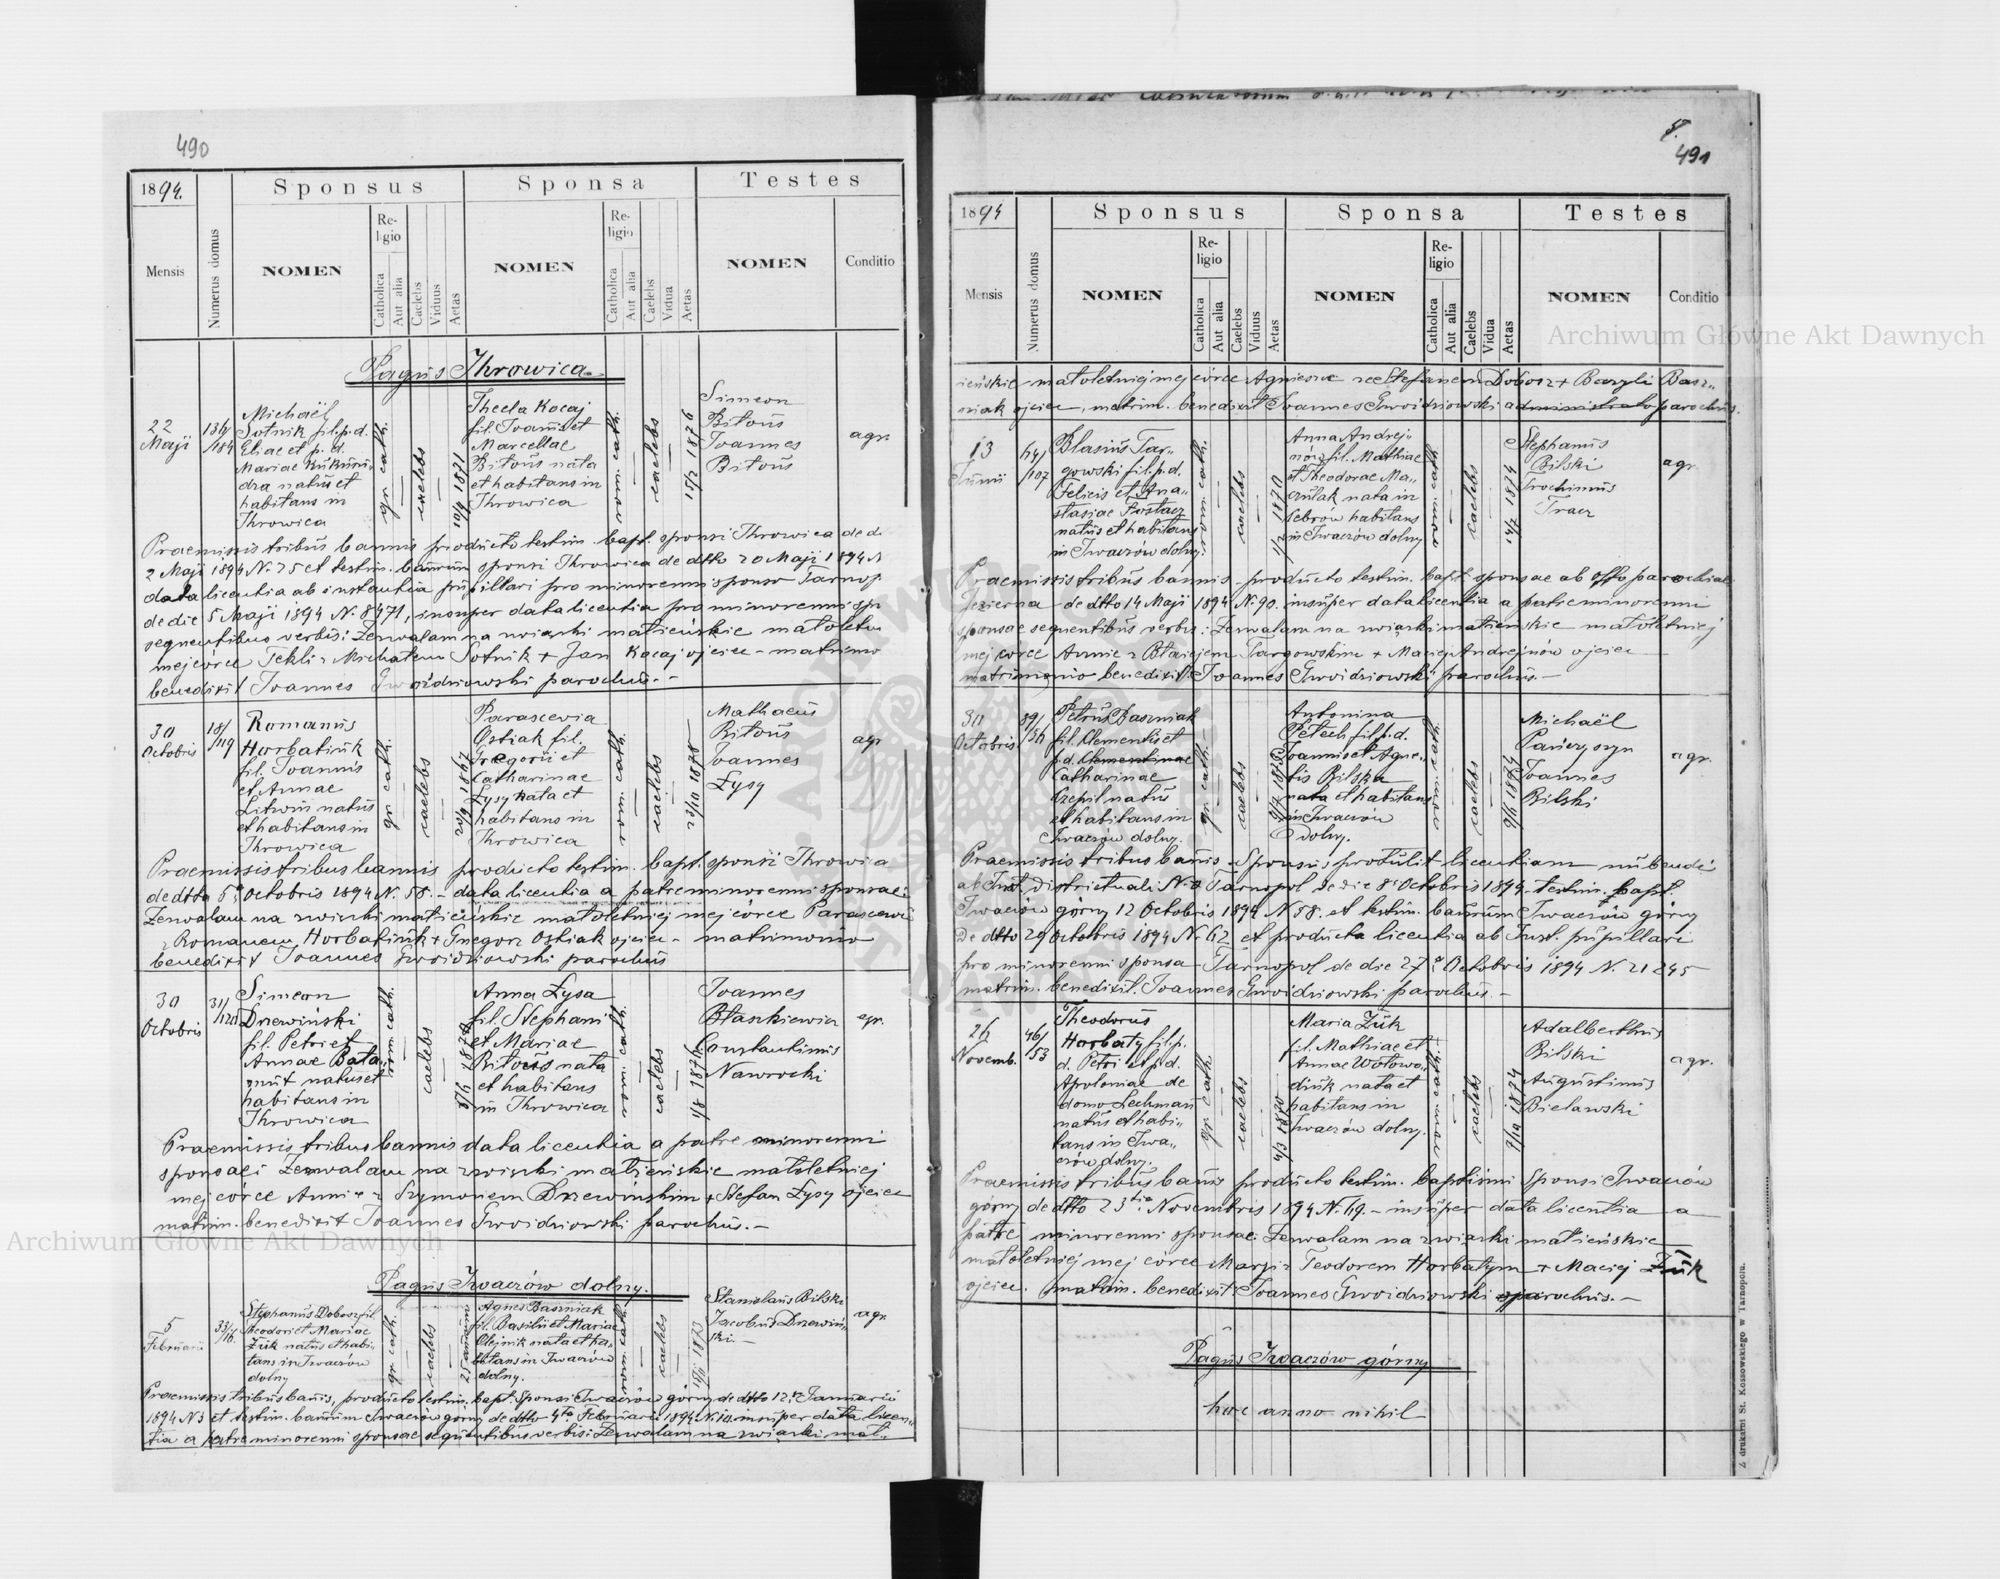 490
1894.
Sponsus
Sponsa
Testes
Mensis
Numerus domus
NOMEN
Religio
Catholica
Aut alia
Caelebs
Viduus
Aetas
NOMEN
Religio
Catholica
Aut alia
Caelebs
Vidua
Aetas
NOMEN
Conditio
Pagus Ihrowica
22
Maji
134/184
Michaël
Sotnik fil. p. d.
Eliae et p. d.
Mariae Kukuru„
dza natus et
habitans in
Ihrowica
gr. cath.
caelebs
10/4 1871
Thecla Kocaj
fil. Joannis et
Marcellae
Bitous nata
et habitans in
Ihrowica
rom. cath.
caelebs
15/2 1876
Simeon
Bitous
Joannes
Bitous
agr.
Praemissis tribus bannis producto testim. bapt. sponsi Ihrowica de d.
2 Maji 1894 N. 75 et testim. bannum sponsi Ihrowica de dtto 20 Maji 1894 N
data licentia ab instantia pupillari pro minorenni sponso Tarnop.
de die 5 Maji 1894 N. 8471, insuper data licentia pro minorenni sp
sequentibus verbis: Zezwalam na związki małżeńskie małoletn
mej córce Tekli z Michałem Sotnik + Jan Kocaj ojciec – matrimo
benedixit Joannes Gwoździowski parochus. –
30
Octobris
18/119
Romanus
Horbatiuk
fil. Joannis
et Annae
Litwin natus
et habitans in
Ihrowica
gr. cath.
caelebs
20/9 1867
Parascevia
Ostiak fil.
Gregorii et
Catharinae
Łysy nata et
habitans in
Ihrowica
rom. cath.
caelebs
23/10 1878
Mathaeus
Bitous
Joannes
Łysy
agr
Praemissis tribus bannis producto testim. bapt. sponsi Ihrowica
de dtto 5 Octobris 1894 N. 58. – data licentia a patre minorenni sponsae:
Zezwalam na związki małżeńskie małoletniej mej córce Parascewii
z Romanem Horbatiuk + Gregorz Ostiak ojciec – matrimonio
benedixit Joannes Gwoździowski parochus
30
Octobris
31/120
Simeon
Drzewiński
fil. Petri et
Annae Bała„
gut natus et
habitans in
Ihrowica
rom. cath.
caelebs
Anna Łysa
fil. Stephani
et Mariae
Bitous nata
et habitans
in Ihrowica
rom. cath.
caelebs
1/8 1876
Joannes
Błaszkiewicz
Constantinus
Nawrocki
agr.
Praemissis tribus bannis data licentia a patre minorenni
sponsae: Zezwalam na związki małżeńskie małoletniej
mej córce Annie z Szymonem Drzewińskim + Stefan Łysy ojciec
matrim. benedixit Joannes Gwoździowski parochus. –
Pagus Iwaczów dolny.
5
Februarii
33/16.
Stephanus Dobosz fil.
Theodori et Mariae
Żuk natus et habi„
tans in Iwaczów
dolny
gr. cath.
caelebs
25 annorum
Agnes Baszniak
fil. Basilii et Mariae
Olejnik nata et ha„
bitans in Iwaczów
dolny.
rom. cath.
caelebs
Stanislaus Bilski
Jacobus Drzewiń„
ski –
agr.
Praemissis tribus bannis, producto testim. bapt. Sponsi Iwaczów górny de dtto 12. Januarii
1894 N 3 et testim. bannum Iwaczów górny de dtto 4to Februarii 1894 N. 10. insuper data licen„
tia a patre minorenni sponsae sequentibus verbis: Zezwalam na związki mał„
491
1894
Sponsus
Sponsa
Testes
Mensis
Numerus domus
NOMEN
Religio
Catholica
Aut alia
Caelebs
Viduus
Aetas
NOMEN
Religio
Catholica
Aut alia
Caelebs
Vidua
Aetas
NOMEN
Conditio
żeńskie małoletniej mej córce Agnieszce ze Stefanem Dobosz + Bazyli Basz„
niak ojciec, matrim. benedixit Joannes Gwoździowski administrato parochus.
13
Junii
64/107
Blasius Tar„
gowski fil. p. d.
Felicis et Ana„
stasiae Postacz
natus et habitans
in Iwaczów dolny.
rom. cath.
caelebs
1/2 1870
Anna Andrej„
nów fil. Mathiae
et Theodorae Ma„
czulak nata in
Cebrów habitans
in Iwaczów dolny
rom. cath.
caelebs
14/7 1874
Stephanus
Bilski
Trochimus
Tracz
agr.
Praemissis tribus bannis – producto testim. bapt. sponsae ab offo parochiali
Jezierna – de dtto 14 Maji 1894 N. 90. insuper data licentia a patre minorenni
sponsae sequentibus verbis: Zezwalam na związki małżeńskie małoletniej
mej córce Annie z Błażejem Targowskim + Maciej Andrejnów ojciec –
matrimonio benedixit Joannes Gwoździowski parochus. –
30
Octobris
89/56
Petrus Baszniak
fil. Clementis et
p.d. Clementinae
Catharinae
Czepil natus
et habitans in
Iwaczów dolny.
gr. cath.
caelebs
Antonina
Petech fil. p. d.
Joannis et Agne„
tis Bilska
nata et habitans
in Iwaczów
dolny.
rom. cath.
caelebs
9/11 1874
Michaël
Pańczyszyn
Joannes
Bilski
agr.
Praemissis tribus bannis – Sponsus protulit licentiam nubendi
ab Inst. districtuali N. 0 Tarnopol de die 8 Octobris 1894 – testim. bapt.
Iwaczów górny 12 Octobris 1894 N 58. et testim. bannum Iwaczów górny
de dtto 29 Octobris 1894 N. 62, et producta licentia ab Inst. pupillari
pro minorenni sponsa – Tarnopol de die 27 Octobris 1894 N. 21245
matrim. benedixit. Joannes Gwoździowski parochus. –
26
Novemb.
46/53
Theodorus
Horbaty fil. p.
d. Petri et p. d.
Apoloniae de
domo Lechman
natus et habi„
tans in Iwa„
czów dolny.
gr. cath.
caelebs
4/3 1870
Maria Żuk
fil. Mathiae et
Annae Wołowo„
diuk nata et
habitans in
Iwaczów dolny.
rom. cath.
caelebs
9/10 1874
Adalbertus
Bilski
Augustinus
Bielawski
agr.
Praemissis tribus bannis producto testim. baptismi sponsi Iwaczów
górny de dtto 23tia Novembris 1894 N. 69. – insuper data licentia a
patre minorenni sponsae: Zezwalam na związki małżeńskie
małoletniej mej córce Maryi z Teodorem Horbatym + Maciej Żuk
ojciec. matrim. benedixit Joannes Gwoździowski parochus. –
Pagus Iwaczów górny
hoc anno nihil
Z drukarni St. Kossowskiego w Tarnopolu.
Archiwum Główne Akt Dawnych
Archiwum Główne Akt Dawnych